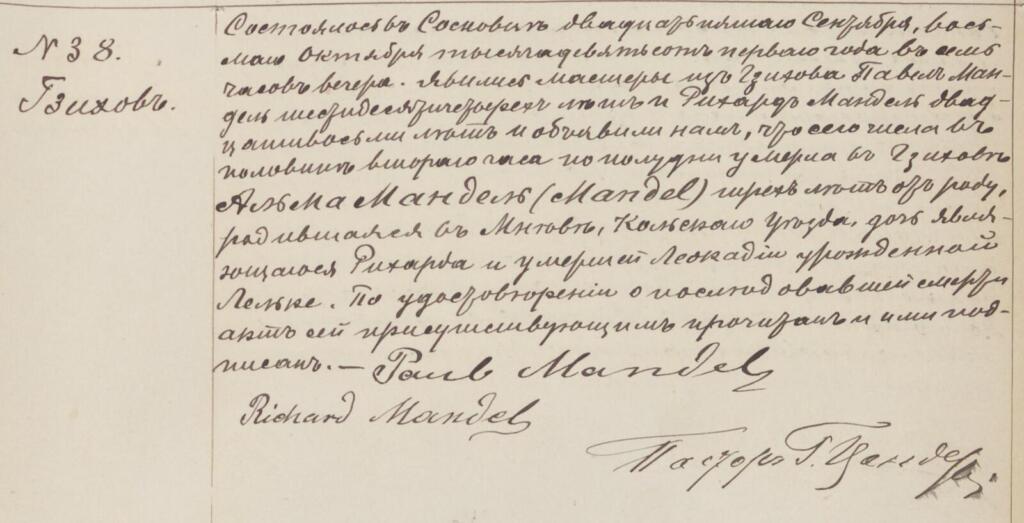 N 38.
Гзиховъ.
Состоялось въ Сосновицѣ двадцать пятаго Сентября, вось-
маго Октября тысяча девятьсотъ перваго года въ семь
часовъ вечера. Явились мастеры изъ Гзихова Павелъ Ман-
дель шестидесяти четырехъ лѣтъ и Рихардъ Мандель двад-
цативосьми лѣтъ и объявили намъ, что сего числа въ
половинѣ втораго часа по полудни умерла въ Гзиховѣ
Альма Мандель (Mandel) трехъ лѣтъ отъ роду,
родившаяся въ Кольскаго уѣзда, дочь явля-
ющагося Рихарда и умершей Леокадіи урожденной
Лельке. По удостовѣреніи о послѣдовавшей смерти
актъ сей присутствующимъ прочитанъ и ими под-
писанъ. — Paul Mandel
Richard Mandel
Пасторъ Г. Цандеръ.